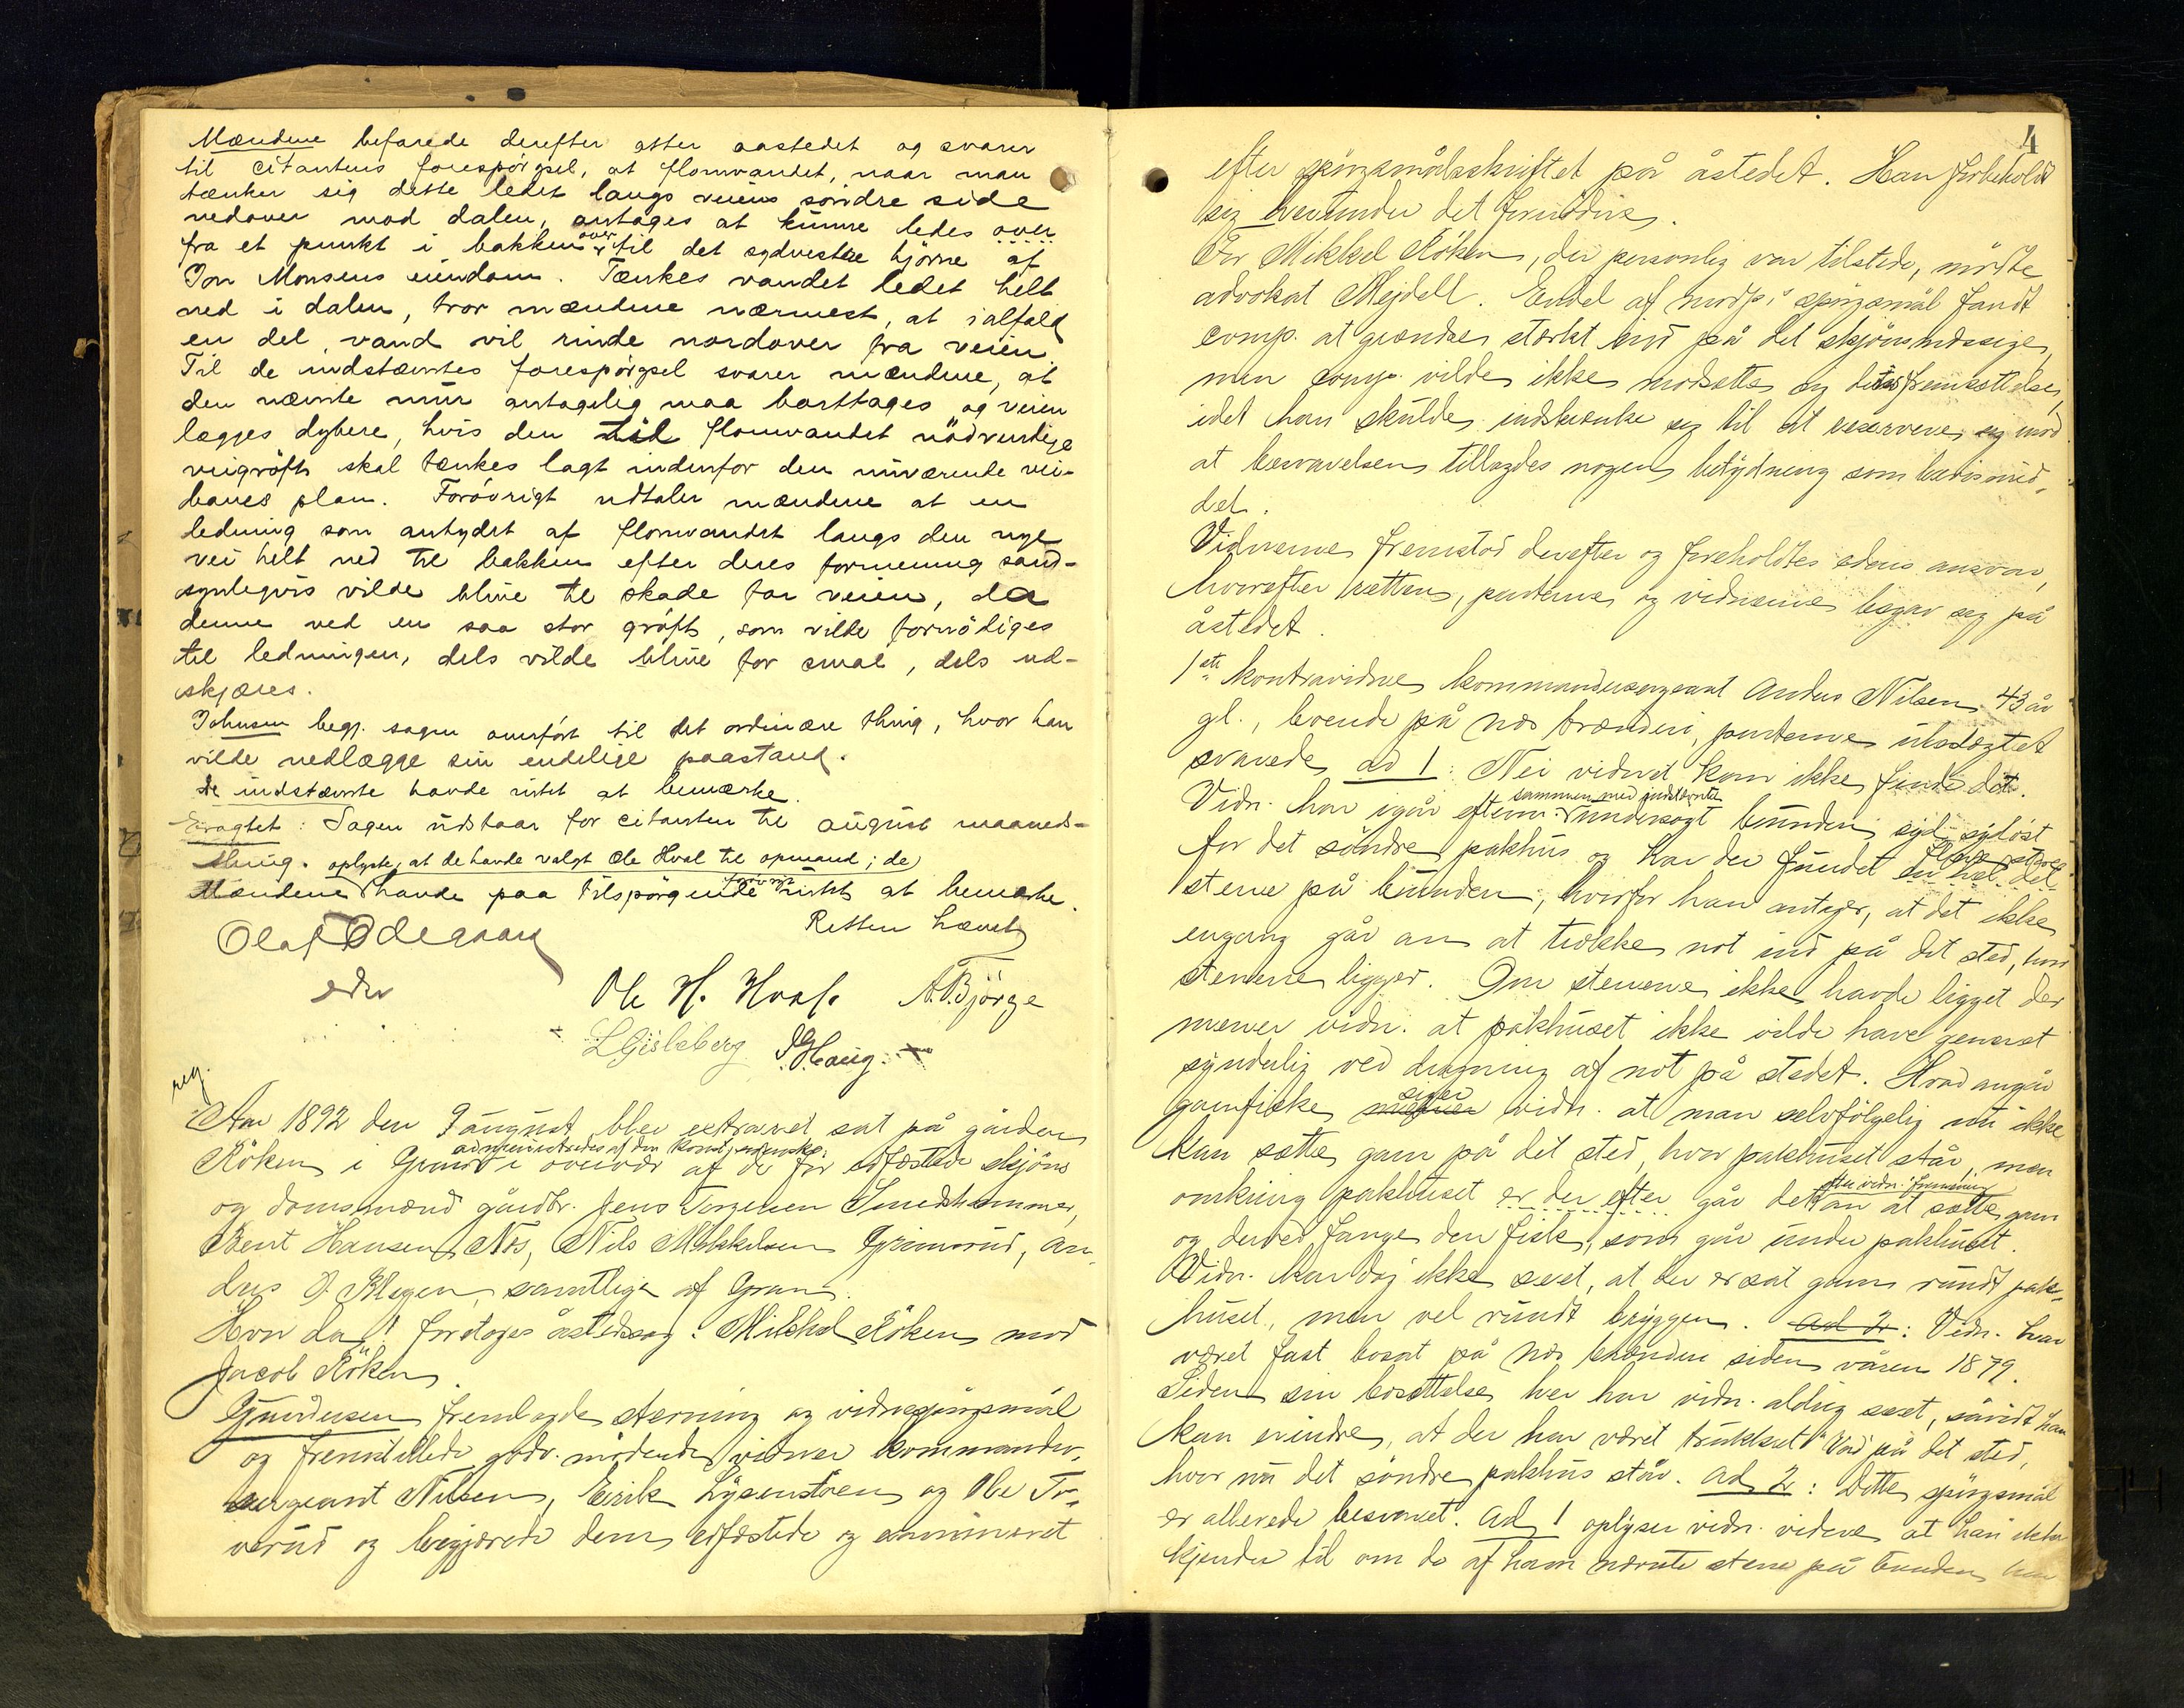 Mændene befarede derefter atter aastedet og svarer
til citantens forespörgsel, at flomvandet, naar man
tænker sig dette ledet langs veiens söndre side
nedover mod dalen, antages at kunne ledes over
fra et punkt i bakken over til det sydvestre hjörne af
Jon Monsens eiendom. Tænkes vandet ledet helt
ned i dalen, tror mændene nærmest, at ialfald
en del vand vil rinde nordover fra veien.
Til de indstævntes forespörgsel svarer mændene, at
den nævnte mur antagelig maa borttages og veien
lægges dybere, hvis den til flomvandet nödvendige
veigröft skal tænkes lagt indenfor den nuværende vei-
banes plan. Forövrigt udtaler mændene at en
ledning som antydet af flomvandet langs den nye
vei helt ned til bakken efter deres formening sand-
synligvis vilde blive til skade for veien, da
denne ved en saa stor gröft, som vilde fornödiges
til ledningen, dels vilde blive for smal, dels ud-
skjæres.
Johnsen begj. sagen overfört til det ordinære thing, hvor han
vilde nedlægge sin endelige paastand.
De indstævnte havde intet at bemærke.
Eragtet: Sagen udstaar for citanten til august maaneds-
thing. oplyste, at de havde valgt Ole Hval til opmand; de
Mændene havde paa tilspörgende forövrigt intet at bemærke.
Retten hævet
Olaf Ödegaard
edsv
Ole H. Hval. A. Björge
L Gisleberg J G Haug.
reg.
Aar 1892 den 9 august blev extraret sat på gården
Röken i Gran administredes af den konst. i overvær af de för edfæstede skjöns
og domsmænd gårdbr. Jens Torgersen Smedshammer,
Bent Hansen Næs, Nils Mikkelsen Grinvrud, An-
ders O Blegen, samtlige af Gran.
Hvor da! foretoges åstedssag: Mikkel Röken mod
Jacob Röken.
Gundersen fremlagde stævning og vidnespörgsmål
og fremstillede godv. mödende vidner kommander-
sergeant Nilsen, Eirik Lysenstöen og Ole To-
verud og begjærede dem edfæstede og examineret
4
efter spörgsmålsskriftet på åstedet. Han forbeholdt
sig herunder det fornödne.
For Mikkel Röken, der personlig var tilstede, mödte
advokat Mejdell. Endel af modp.s spörgsmål fandt
comp. at grændse stærkt ind på det skjönsmæssige,
men comp. vilde ikke modsætte sig deres fremsættelse,
idet han skulde indskrænke sig til at reservere sig mod
at besvarelsen tillagdes nogen betydning som bevismid-
del.
Vidnerne fremstod derefter og foreholdtes edens ansvar,
hvorefter retten, parterne og vidnerne begav seg på
åstedet.
1ste kontravidne kommandersergeant Anders Nilsen 43 år
gl., boende på Næs brænderi, parterne ubeslægtet
svarede ad 1: Nei vidnet kan ikke finde det.
Vidn. har igår efterm. sammen med indstævnte undersögt bunden syd sydöst
for det söndre pakhus og har der fundet en hel del flere större
stene på bunden, hvorfor han antager, at det ikke
engang går an at trække not ind på det sted, hvor
stenene ligger. Om stenene ikke havde ligget der
mener vidn. at pakhuset ikke vilde have generet
synderlig ved dragning af not på stedet. Hvad angår
garnfiske mener siger vidn. at man selvfölgelig nu ikke
kan sætte garn på det sted, hvor pakhuset står, men
omkring pakhuset er der efter går det efter vidn. formening an at sætte garn
og derved fange den fisk, som går under pakhuset.
Vidn. har dog ikke seet, at der er sat garn rundt pak-
huset, men vel rundt bryggen. ad 2: Vidn. har
været fast bosat på Næs brænderi siden våren 1879.
Siden sin bosættelse her har vidn. aldrig seet, såvidt han
kan erindre, at der har været trukket Vad på det sted,
hvor nu det söndre pakhus står. ad 2: Dette spörgsmål
er allerede besvaret. ad 1 oplyser vidn. videre at han ikke
kjender til om de af ham nævnte stene på bunden har